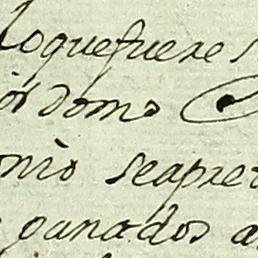 loquefuere s
iordomo
onio seapre
ganados a